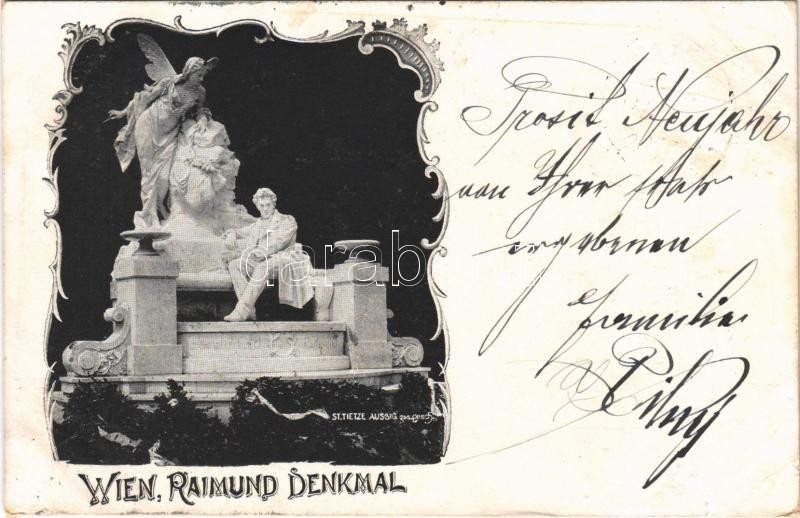 Prosit Neujahr
von Ihrer stets
ergebenen
Familie
Pilny
darab
ST. TIETZE AUSSIG ges. gesch.
WIEN, RAIMUND DENKMAL